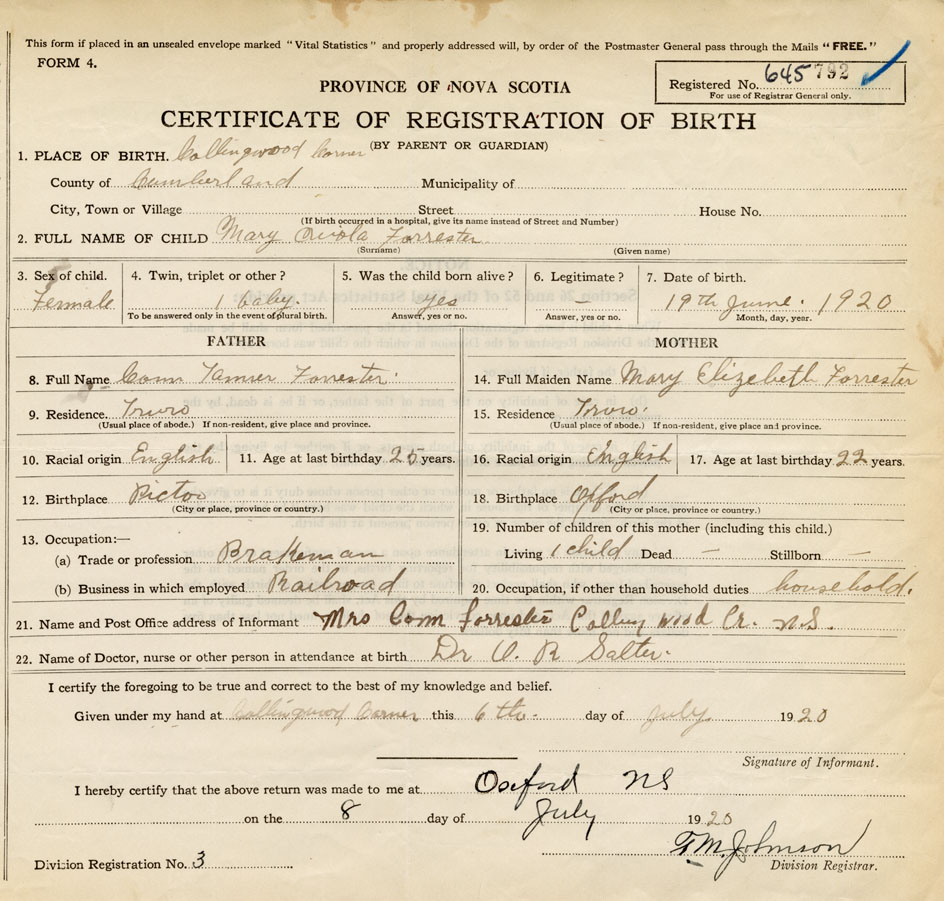 This form if placed in an unsealed envelope marked "Vital Statistics" and properly addressed will, by order of the Postmaster General pass through the Mails "FREE."
FORM 4.
Registered No. 645 792
For use of Registrar General only.
PROVINCE OF NOVA SCOTIA
CERTIFICATE OF REGISTRATION OF BIRTH
(BY PARENT OR GUARDIAN)
1. PLACE OF BIRTH. Collingwood Corner
County of Cumberland Municipality of
City, Town or Village Street House No.
(If birth occurred in a hospital, give its name instead of Street and Number)
2. FULL NAME OF CHILD Mary Forrester
(Surname) (Given name)
3. Sex of child. 4. Twin, triplet or other? 5. Was the child born alive? 6. Legitimate? 7. Date of birth.
Female 1 baby. yes – 19th June. 1920
To be answered only in the event of plural birth. Answer, yes or no. Answer, yes or no. Month, day, year.
FATHER MOTHER
8. Full Name Conn Forrester 14. Full Maiden Name Mary Elizabeth Forrester
9. Residence. Truro 15. Residence Truro.
(Usual place of abode.) If non-resident, give place and province. (Usual place of abode.) If non-resident, give place and province.
10. Racial origin English 11. Age at last birthday 25 years. 16. Racial origin English 17. Age at last birthday 22 years.
12. Birthplace Pictoo 18. Birthplace Oxford
(City or place, province or country.) (City or place, province or country.)
13. Occupation:— 19. Number of children of this mother (including this child.)
(a) Trade or profession Brakeman Living 1 child Dead — Stillborn —
(b) Business in which employed Railroad 20. Occupation, if other than household duties household.
21. Name and Post Office address of Informant Mrs Conn Forrester Colling wood Cr. N.S.
22. Name of Doctor, nurse or other person in attendance at birth Dr R Salter.
I certify the foregoing to be true and correct to the best of my knowledge and belief.
Given under my hand at Collingwood Corner this 6th day of July 1920
Signature of Informant.
I hereby certify that the above return was made to me at Oxford NS
on the 8 day of July 1920
F.M. Johnson
Division Registration No. 3 Division Registrar.